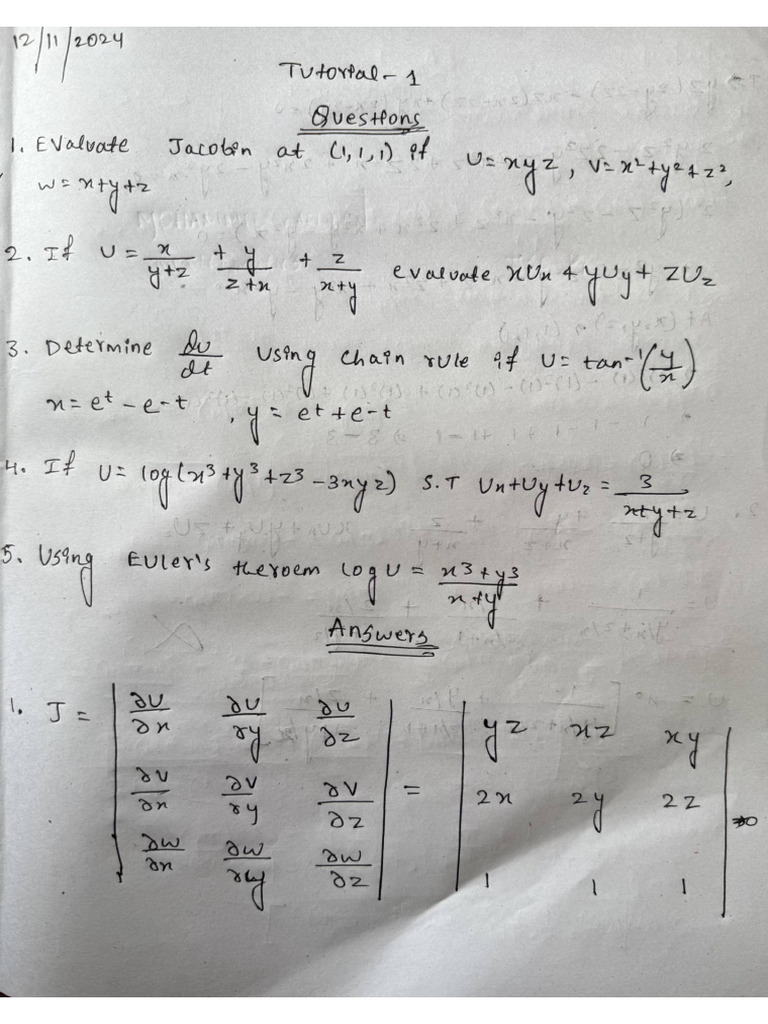 12/11/2024
Tutorial - 1
Questions
1. Evaluate Jacobin at (1, 1, 1) if U = xyz, V = x² + y² + z²,
w = x + y + z
2. If U = x/(y+z) + y/(z+x) + z/(x+y) evaluate xUx + yUy + zUz
3. Determine du/dt using chain rule if U = tan⁻¹(y/x)
x = e^t - e^-t, y = e^t + e^-t
4. If U = log(x³ + y³ + z³ - 3xyz) S.T Ux + Uy + Uz = 3/(x+y+z)
5. Using Euler's theroem log U = (x³ + y³)/(x + y)
Answers
1. J = | ∂U/∂x ∂U/∂y ∂U/∂z | = | yz xz xy |
| ∂V/∂x ∂V/∂y ∂V/∂z | | 2x 2y 2z |
| ∂w/∂x ∂w/∂y ∂w/∂z | | 1 1 1 |